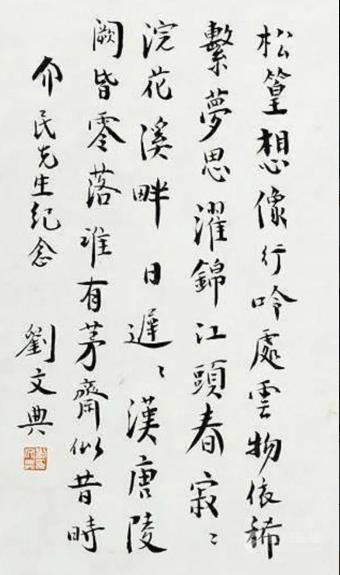 松篁想像行吟處雲物依稀
繫夢思濯錦江頭春寂〻
浣花溪畔日遲〻漢唐陵
闕皆零落誰有茅齋似昔時
介民先生紀念
劉文典